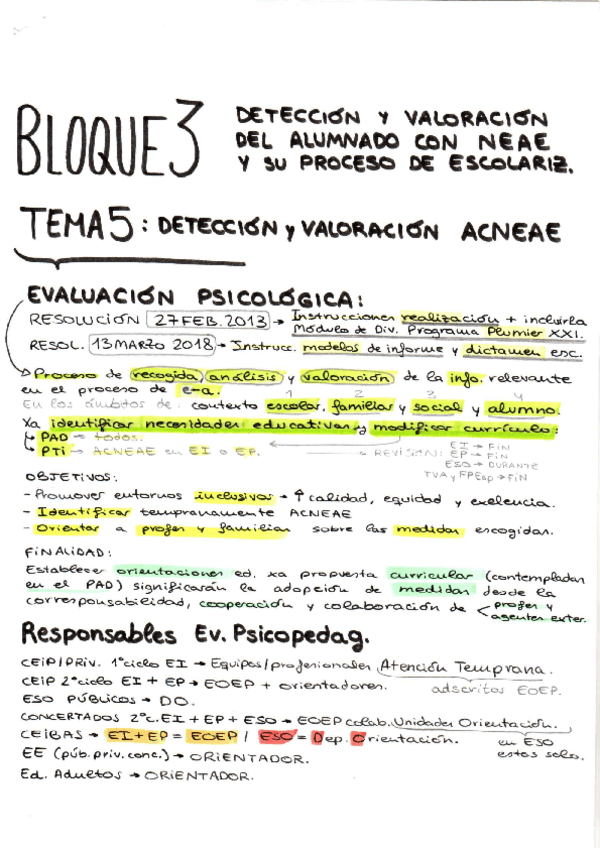 BLOQUE 3
DETECCIÓN Y VALORACIÓN
DEL ALUMNADO CON NEAE
Y SU PROCESO DE ESCOLARIZ.
TEMA 5: DETECCIÓN Y VALORACIÓN ACNEAE
EVALUACIÓN PSICOLÓGICA:
RESOLUCIÓN 27 FEB. 2013 → Instrucciones realización + incluirla
Módulo de Div. Programa Plumier XXI.
RESOL. 13 MARZO 2018 → Instrucc. modelos de informe y dictamen esc.
Proceso de recogida, análisis y valoración de la info. relevante
en el proceso de e-a.
1 2 3 4
En los ámbitos de: contexto escolar, familiar y social y alumno.
Xa identificar necesidades educativas y modificar currículo:
↳ PAD → todos.
↳ PTi → ACNEAE en EI o EP.
← REVISIÓN: EI → FIN
EP → FIN
ESO → DURANTE
TVA y FPEsp → FIN
OBJETIVOS:
- Promover entornos inclusivos → ↑ calidad, equidad y exelencia.
- Identificar tempranamente ACNEAE
- Orientar a profes y familias sobre las medidas escogidas.
FINALIDAD:
Establecer orientaciones ed. xa propuesta curricular (contempladas
en el PAD) significarán la adopción de medidas desde la
corresponsabilidad, cooperación y colaboración de < profes y
agentes exter.
Responsables Ev. Psicopedag.
CEIP/PRIV. 1º ciclo EI → Equipos/profesionales Atención Temprana.
adscritos EOEP.
CEIP 2º ciclo EI + EP → EOEP + orientadores.
ESO PÚBLICOS → DO.
CONCERTADOS 2ºc. EI + EP + ESO → EOEP colab. Unidades Orientación.
en ESO
estos solo.
CEIBAS → EI+EP = EOEP / ESO = Dep. Orientación.
EE (púb. priv. conc.) → ORIENTADOR.
Ed. Adultos → ORIENTADOR.